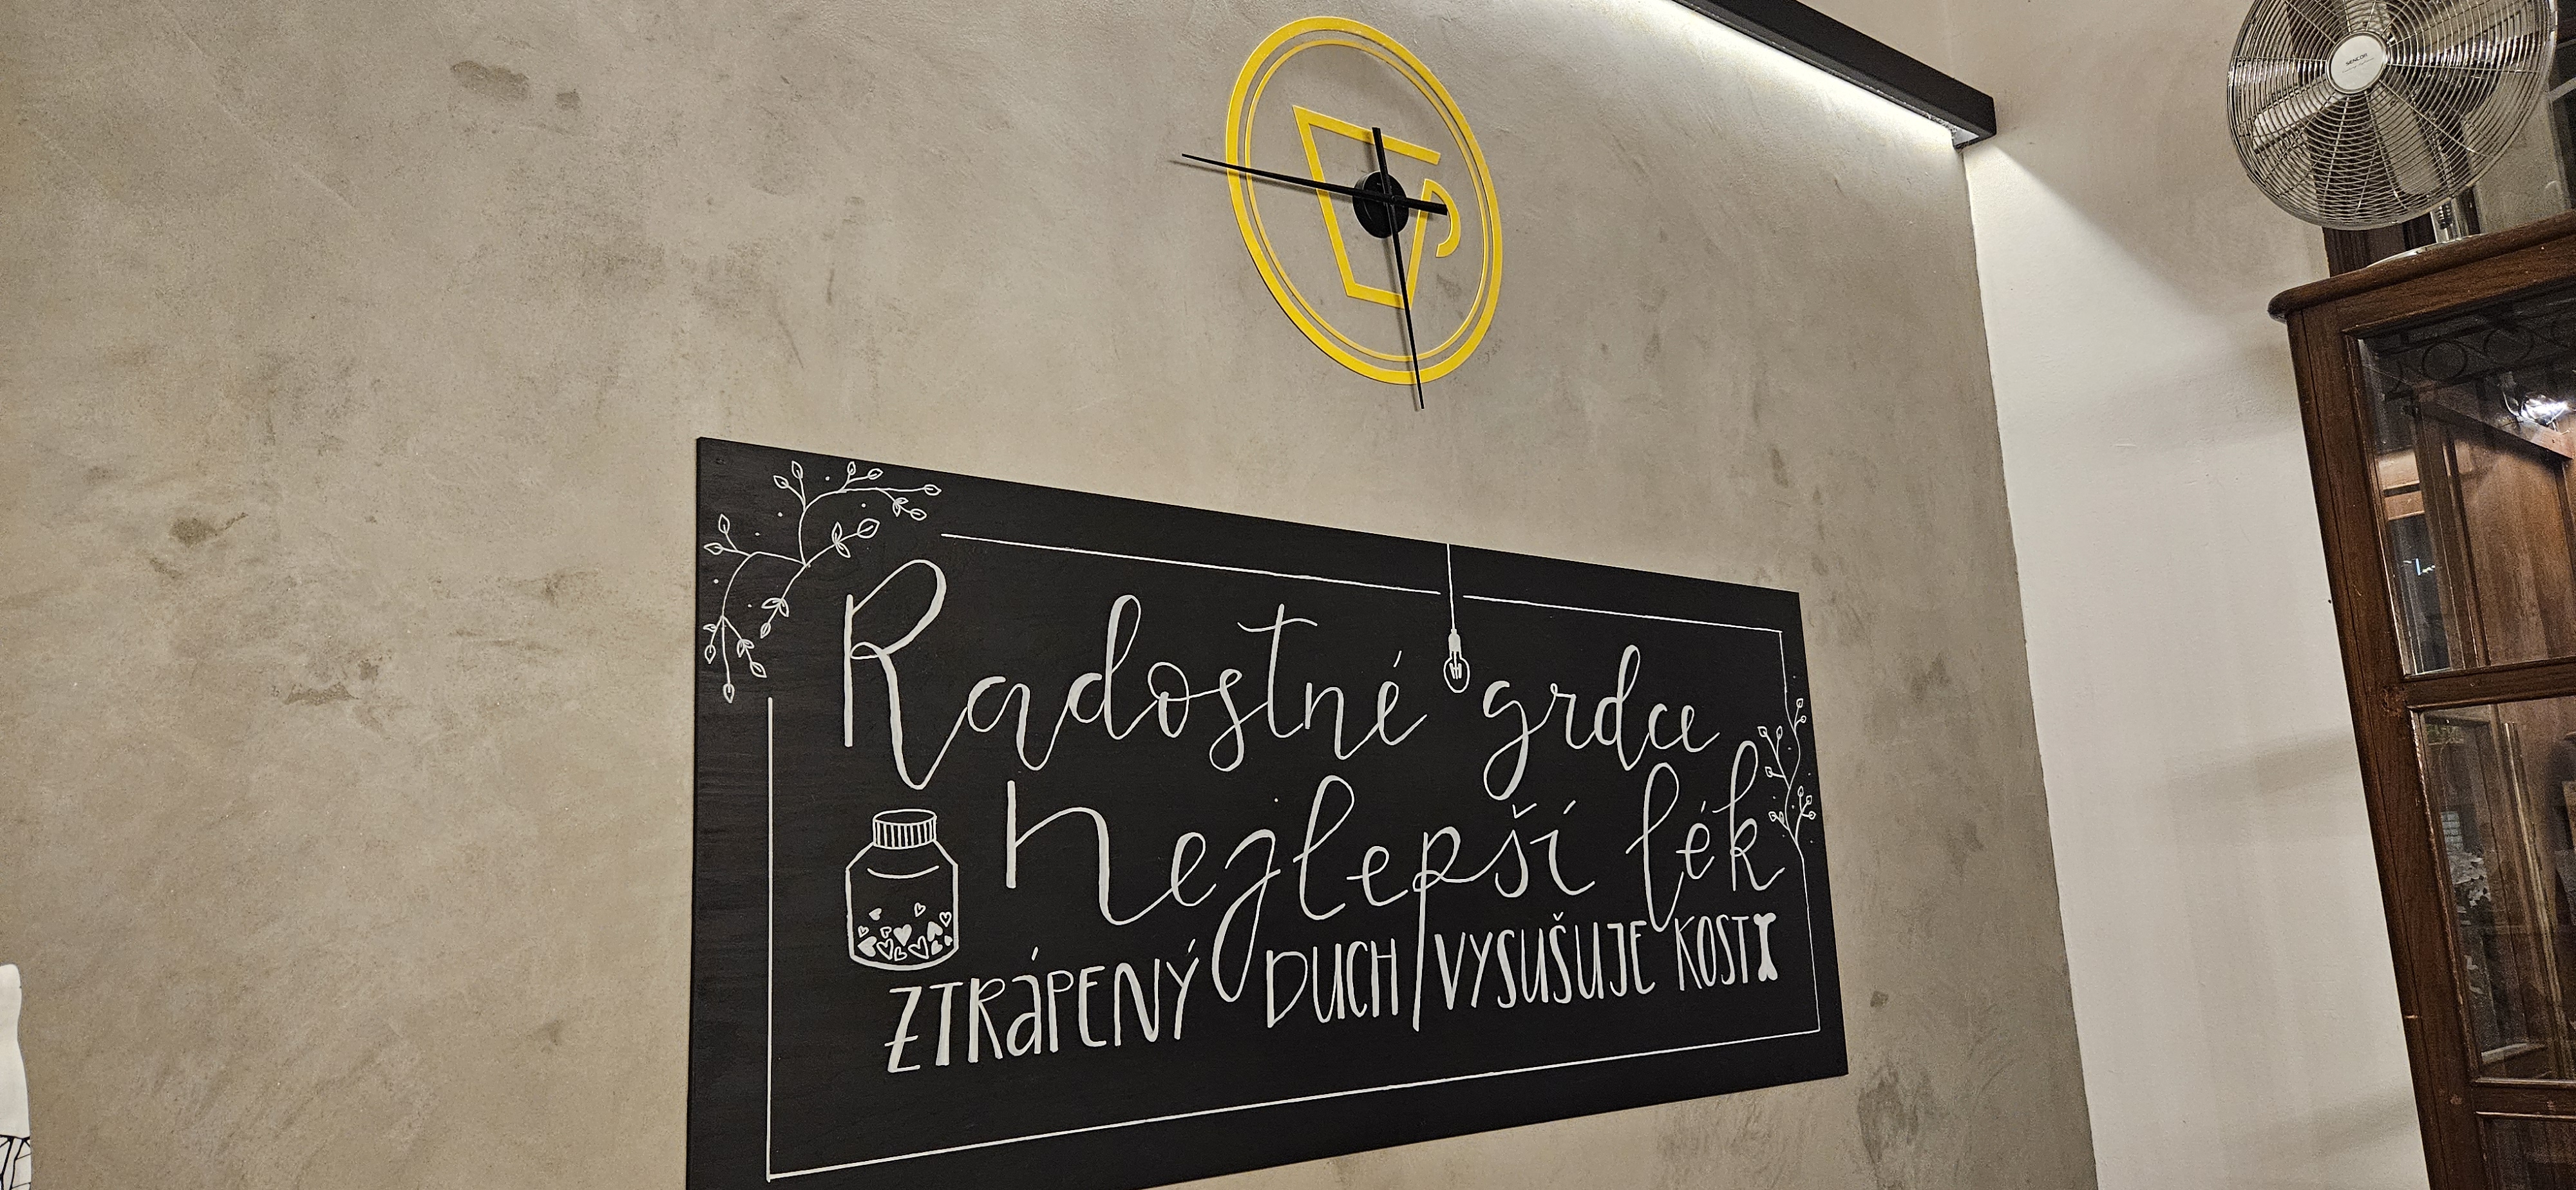 Radostné srdce
Nejlepší lék
ZTRÁPENÝ DUCH VYSUŠUJE KOSTI
SENCOR